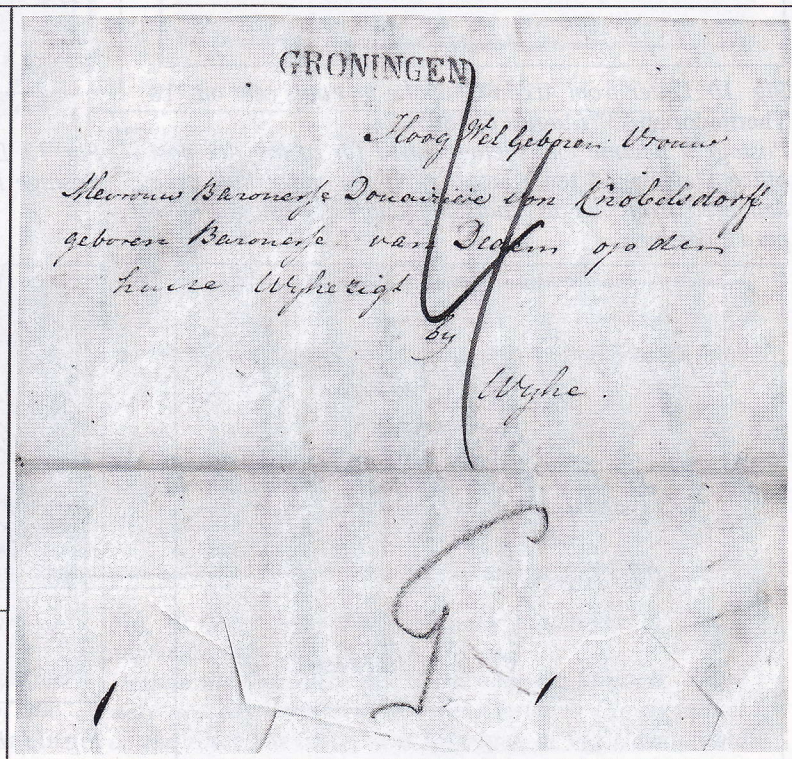 GRONINGEN
Hoog Wel Geboren Vrouw
Mevrouw Baronesse Douairière von Knobelsdorff
geboren Baronesse van Dedem op den
huize Wyhezigt
by
Wyhe.